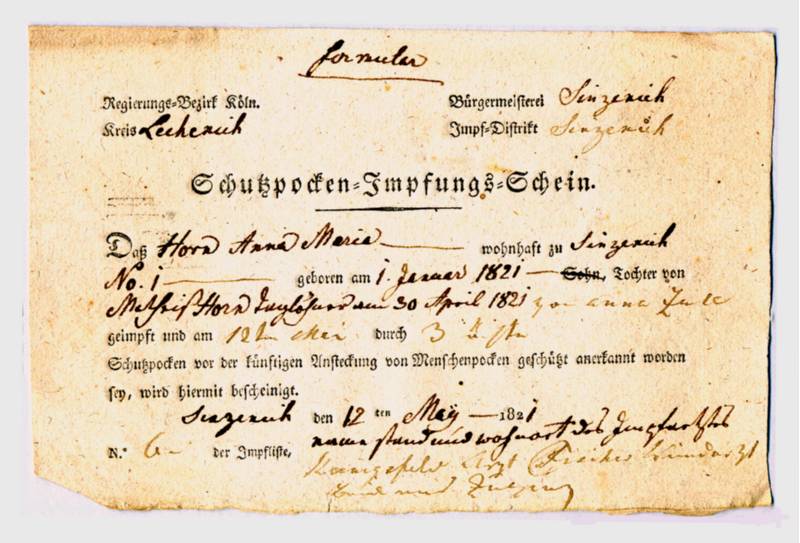 Formular
Regierungs-Bezirk Köln. Bürgermeisterei Sinzenich
Kreis Lechenich Impf-Distrikt Sinzenich
Schutzpocken-Impfungs-Schein.
Daß Horn Anna Maria wohnhaft zu Sinzenich
No. 1 geboren am 1. Januar 1821 Sohn, Tochter von
Horn am 30 April 1821 anna
geimpft und am 12 Mai durch 3
Schutzpocken vor der künftigen Ansteckung von Menschenpocken geschützt anerkannt worden
sey, wird hiermit bescheinigt.
Sinzenich den 12 ten Maÿ 1821
N.° 6 der Impfliste,
name stand und wohnort des Impfarztes
Arzt Wundarzt
und